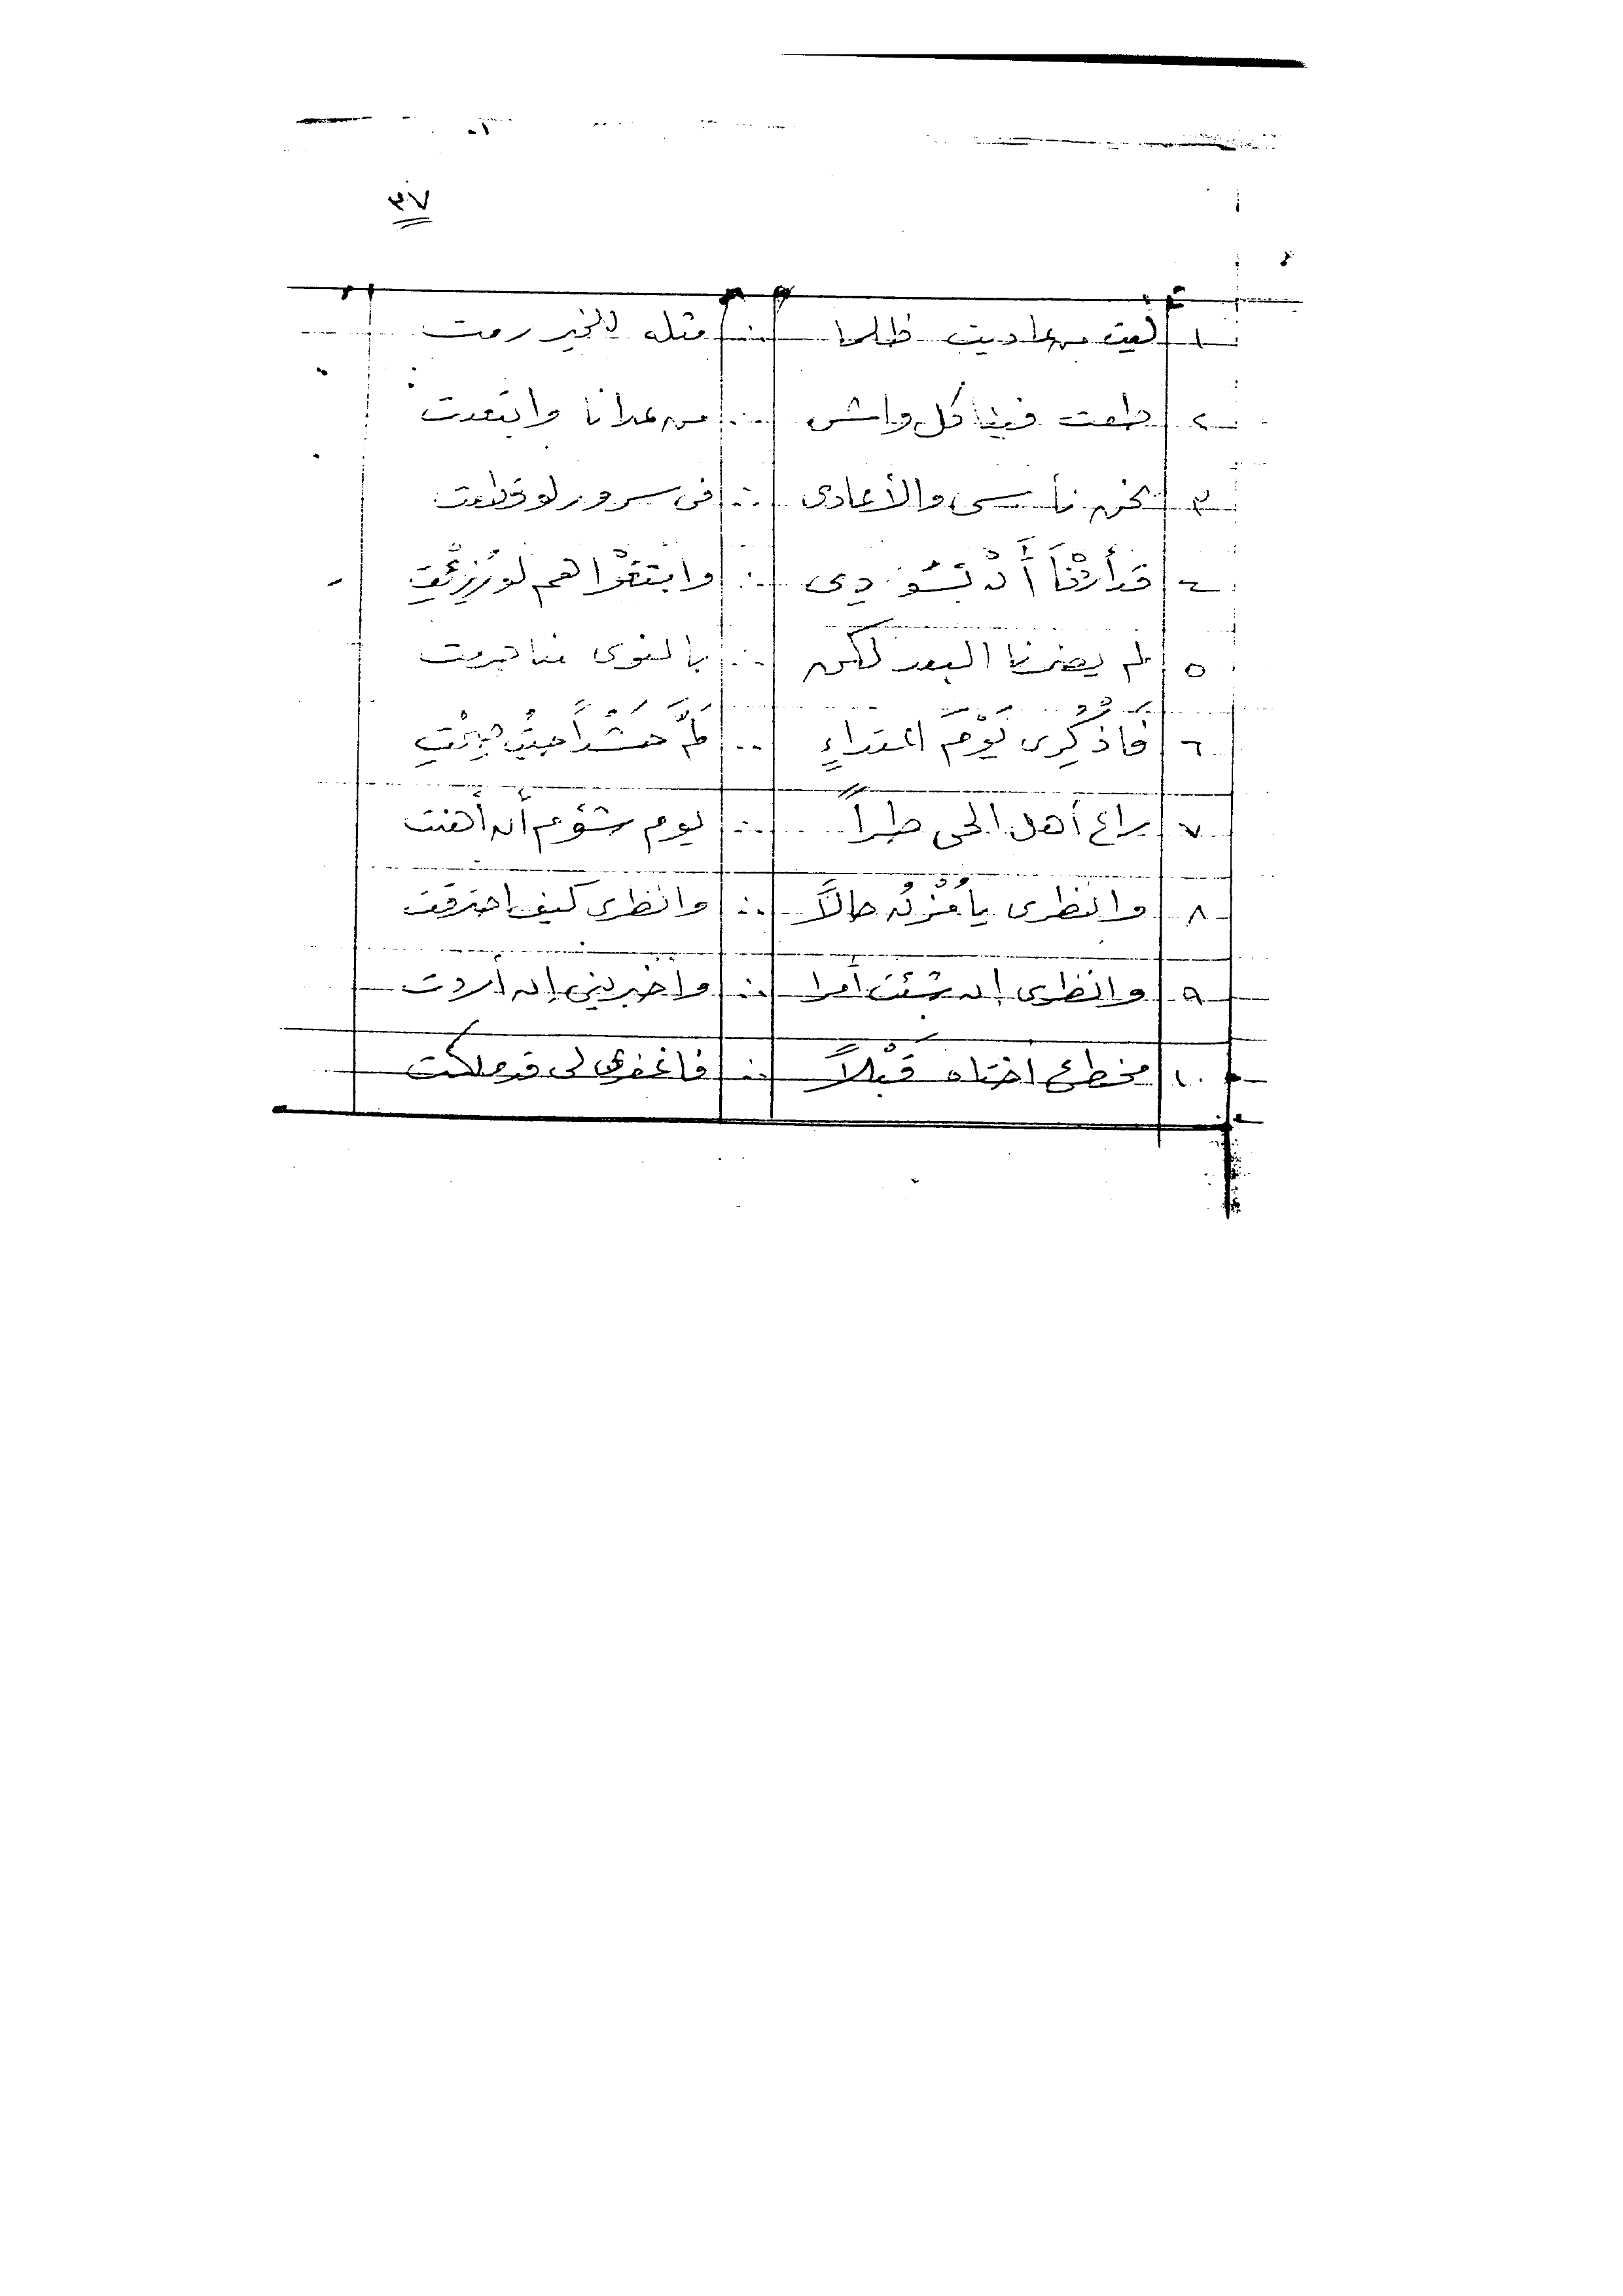 ٣٧
١ ليت من عاديت ظلما ∴ مثله للخير رمت
٢ طعت فينا كل واش ∴ من عدانا وابتعدت
٣ نحن نأسى والأعادى ∴ فى سرور لو قطعت
٤ قد أردْنَا أَنْ تَسُو دِى ∴ وابتغَوْا هم لو رُزِئْتِ
٥ لم يضرنا البعد لكن ∴ بالنوى منا حرمت
٦ فَاذْكُرِى يَوْمَ اعتداءٍ ∴ لَمَّ حَشْداً حيثُ جِئْتِ
٧ راع أهل الحى طراً ∴ يوم شؤم أن أهنت
٨ وانظرى يا مُزْنُ حالاً ∴ وانظرى كيف احترقت
٩ وانظرى إن شئت أمرا ∴ واخبرينى إن أردت
١٠ مخطئ اختاه قَبْلاً ∴ فاغفرى لى قد ملكت